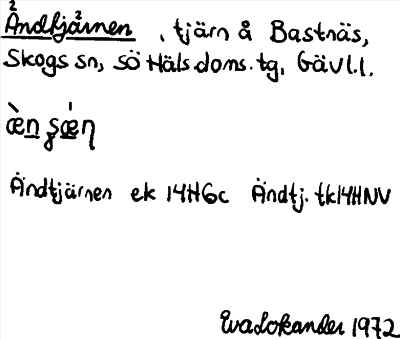 Ändtjärnen , tjärn å Bastnäs,
Skogs sn, sö Häls doms. tg, Gävl.l.
æ̀n ʂǽη
Ändtjärnen ek 14HGc Ändtj. tk14HNV
Eva Lokander 1972